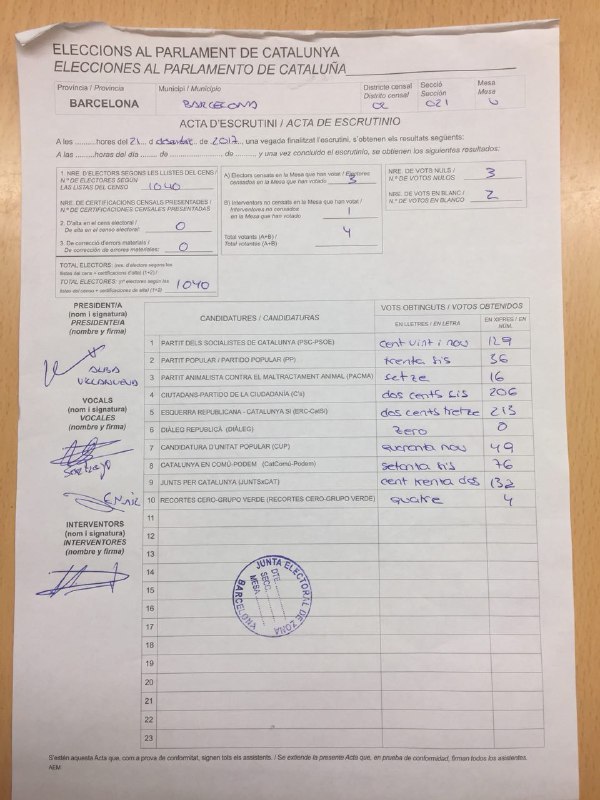 ELECCIONS AL PARLAMENT DE CATALUNYA
ELECCIONES AL PARLAMENTO DE CATALUÑA
Província / Provincia
BARCELONA
Municipi / Municipio
BARCELONA
Districte censal
Distrito censal
02
Secció
Sección
021
Mesa
Mesa
ACTA D'ESCRUTINI / ACTA DE ESCRUTINIO
A les ..........hores del 21 d desembre de 2017, una vegada finalitzat l'escrutini, s'obtenen els resultats següents:
A las ..........horas del día ........ de .................... de ........ y una vez concluido el escrutinio, se obtienen los siguientes resultados:
1. NRE. D'ELECTORS SEGONS LES LLISTES DEL CENS /
N.º DE ELECTORES SEGÚN
LAS LISTAS DEL CENSO 1040
NRE. DE CERTIFICACIONS CENSALS PRESENTADES /
N.º DE CERTIFICACIONES CENSALES PRESENTADAS
2. D'alta en el cens electoral /
De alta en el censo electoral: 0
3. De correcció d'errors materials /
De corrección de errores materiales: 0
TOTAL ELECTORS: (nre. d'electors segons les
llistes del cens + certificacions d'alta) (1+2) /
TOTAL ELECTORES: (n.º electores según las
listas del censo + certificaciones de alta) (1+2) 1040
A) Electors censats en la Mesa que han votat / Electores
censados en la Mesa que han votado 3
B) Interventors no censats en la Mesa que han votat /
Interventores no censados
en la Mesa que han votado 1
Total votants (A+B) /
Total votantes (A+B) 4
NRE. DE VOTS NULS /
N.º DE VOTOS NULOS 3
NRE. DE VOTS EN BLANC /
N.º DE VOTOS EN BLANCO 2
PRESIDENT/A
(nom i signatura)
PRESIDENTE/A
(nombre y firma)
ALBA
VILLANUEVA
VOCALS
(nom i signatura)
VOCALES
(nombre y firma)
Santiago
INTERVENTORS
(nom i signatura)
INTERVENTORES
(nombre y firma)
CANDIDATURES / CANDIDATURAS
VOTS OBTINGUTS / VOTOS OBTENIDOS
EN LLETRES / EN LETRA
EN XIFRES / EN NÚM.
1 PARTIT DELS SOCIALISTES DE CATALUNYA (PSC-PSOE) cent vint i nou 129
2 PARTIT POPULAR / PARTIDO POPULAR (PP) trenta sis 36
3 PARTIT ANIMALISTA CONTRA EL MALTRACTAMENT ANIMAL (PACMA) setze 16
4 CIUTADANS-PARTIDO DE LA CIUDADANÍA (C's) dos cents sis 206
5 ESQUERRA REPUBLICANA - CATALUNYA SÍ (ERC-CatSí) dos cents tretze 213
6 DIÀLEG REPUBLICÀ (DIÀLEG) zero 0
7 CANDIDATURA D'UNITAT POPULAR (CUP) quaranta nou 49
8 CATALUNYA EN COMÚ-PODEM (CatComú-Podem) setanta sis 76
9 JUNTS PER CATALUNYA (JUNTSxCAT) cent trenta dos 132
10 RECORTES CERO-GRUPO VERDE (RECORTES CERO-GRUPO VERDE) quatre 4
11
12
13
14
15
16
17
18
19
20
21
22
23
JUNTA ELECTORAL DE ZONA
BARCELONA
DTE.
SECC.
MESA
S'estén aquesta Acta que, com a prova de conformitat, signen tots els assistents. / Se extiende la presente Acta que, en prueba de conformidad, firman todos los asistentes.